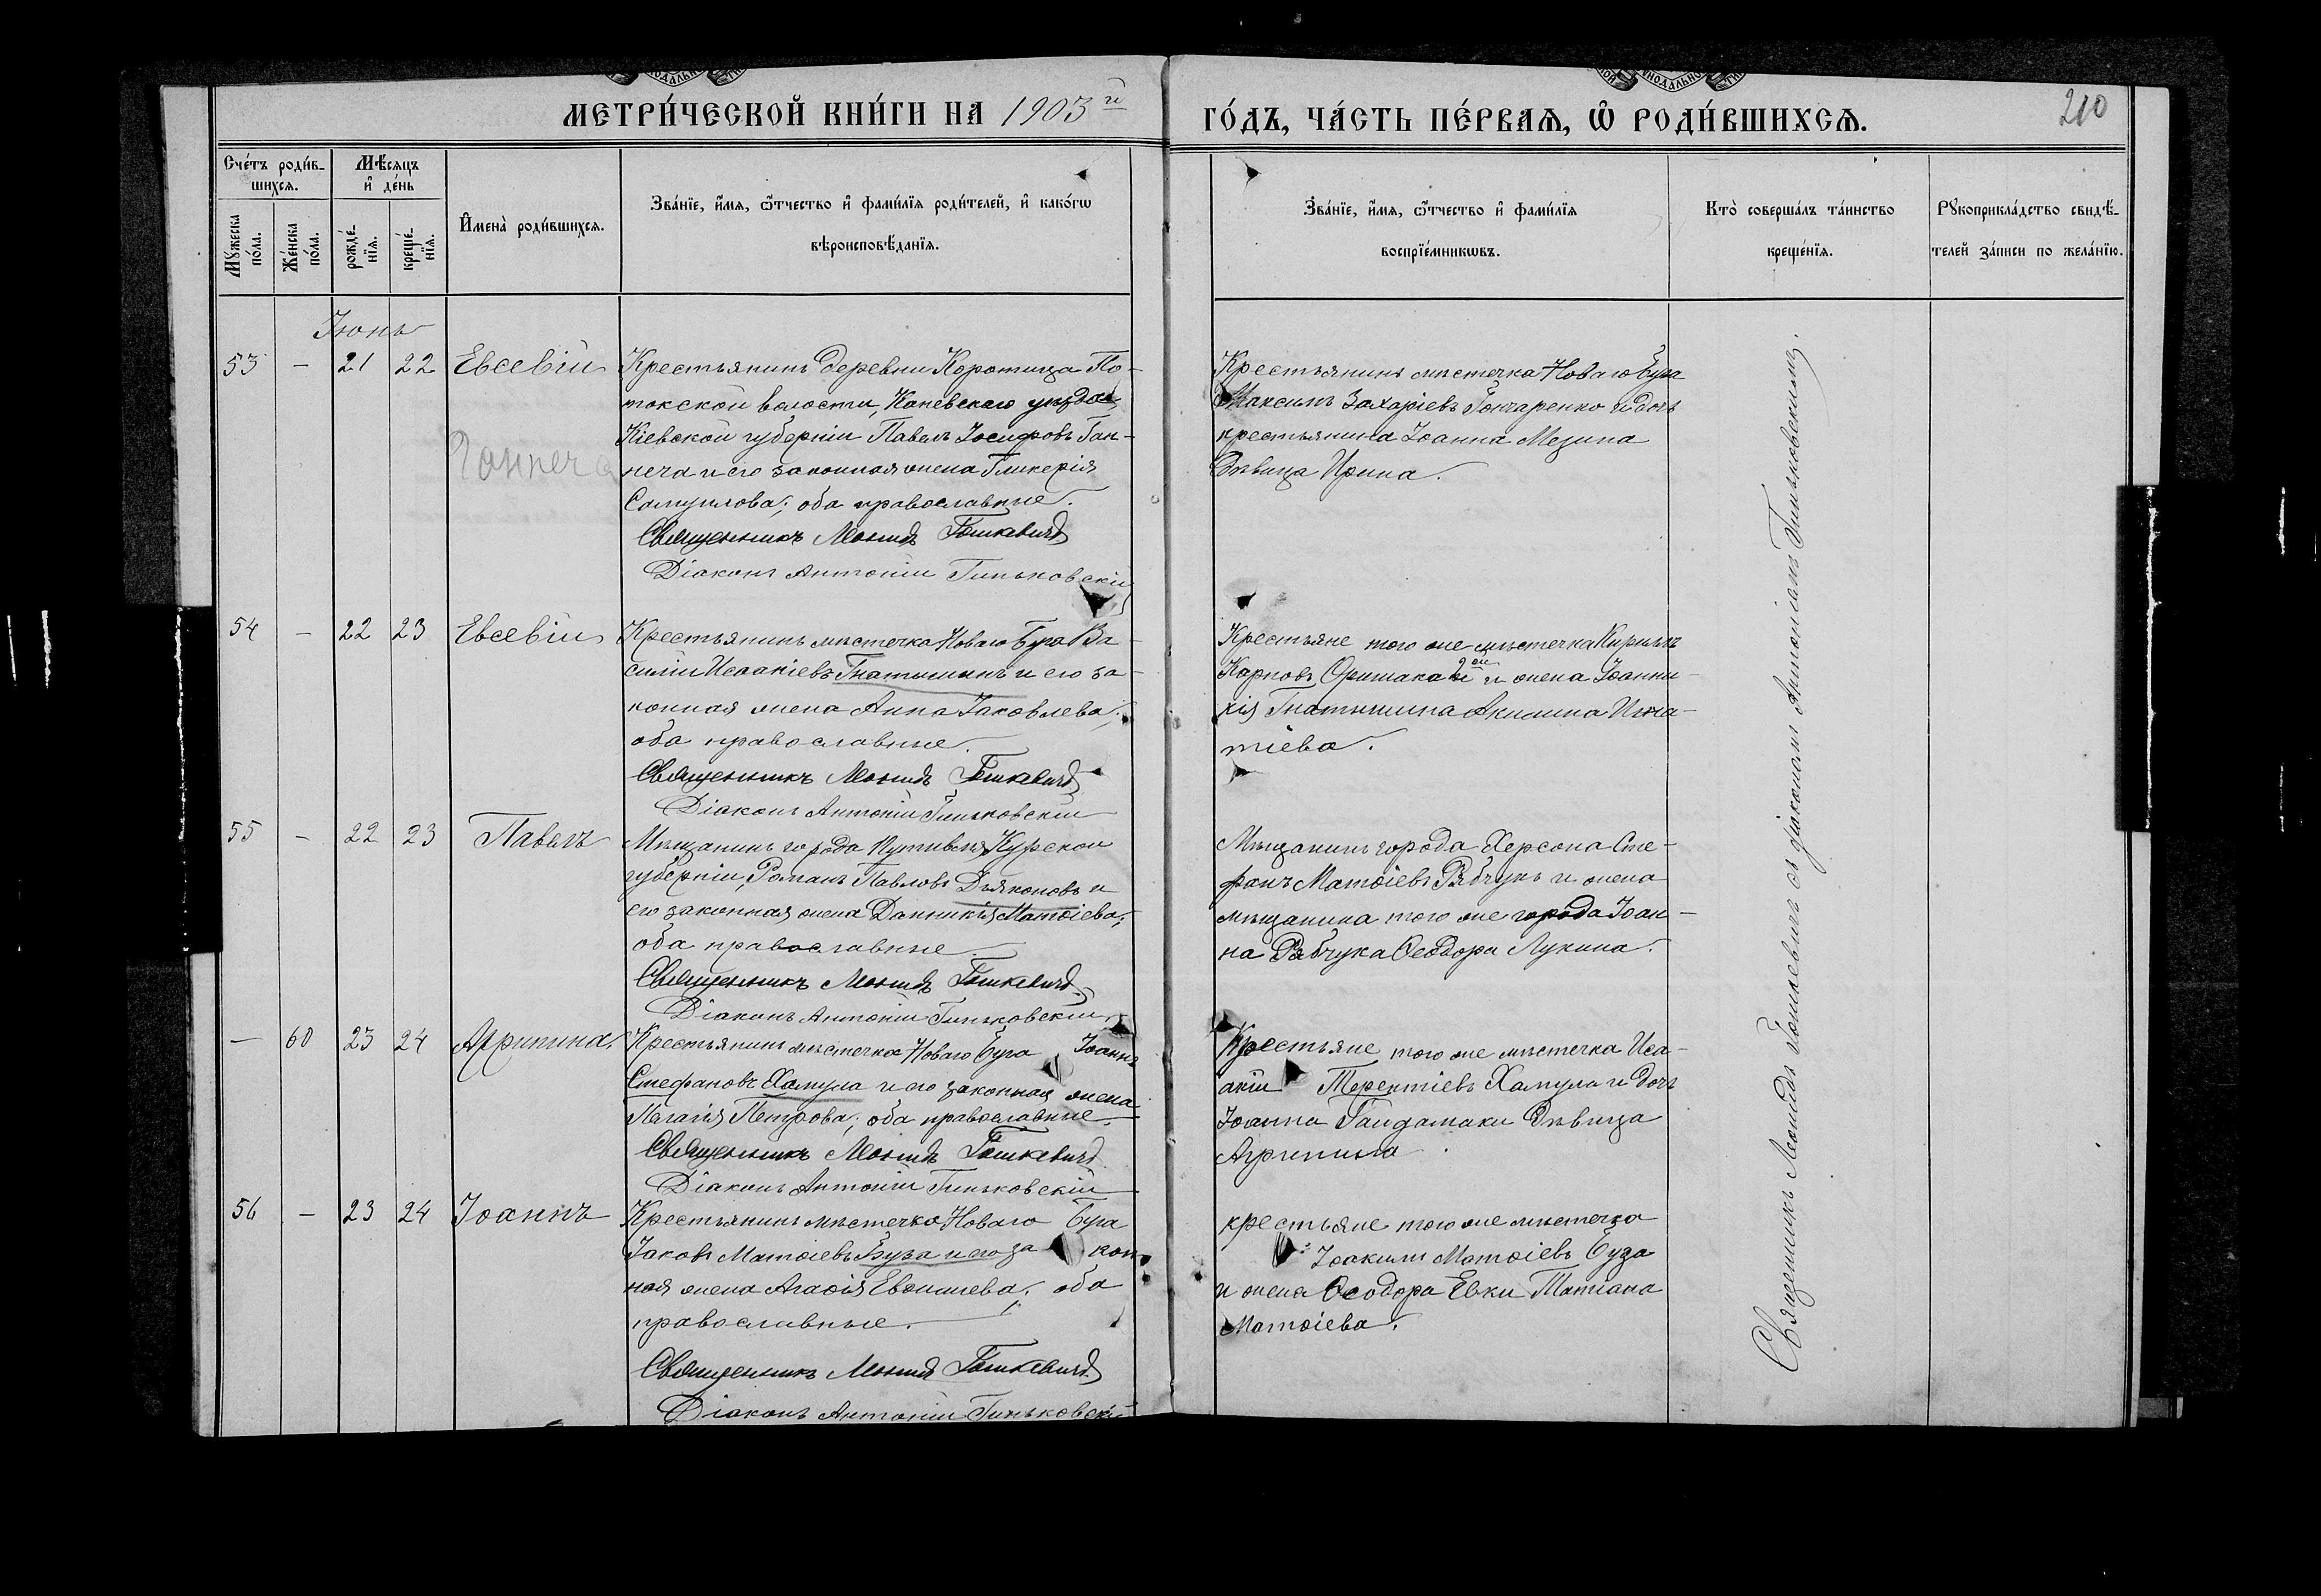 МЕТРИ́ЧЕСКОЙ КНИ́ГИ НА 1903й
ГО́ДЪ, ЧА́СТЬ ПЕ́РВАЯ, Ѽ РОДИ́ВШИХСЯ.
210
Сче́тъ роди́в-
шихся.
Мѣ́сяцъ
и҆ де́нь
Мꙋжеска
по́ла.
Же́нска
по́ла.
рожде́-
нїя.
креще́-
нїя.
И҆мена̀ роди́вшихся.
Зва́нїе, и҆́мя, ѻ҆́тчество и҆ фами́лїя роди́телей, и҆ како́гѡ
вѣроисповѣ́данїя.
Зва́нїе, и҆́мя, ѻ҆́тчество и҆ фами́лїя
воспрїе́мникѡвъ.
Кто̀ соверша́лъ та́инство
креще́нїя.
Рꙋкоприкла́дство свидѣ́-
телей за́писи по жела́нїю.
Іюнь
53 - 21 22 Евсевій
Крестьянинъ деревни Коротища По-
токской волости, Каневскаго уѣзда,
Кіевской губерніи Павелъ Іосифовъ Ган-
неча и его законная жена Гликерія
Самуилова; оба православные.
Священникъ Леонидъ Гошкевичъ
Діаконъ Антоній Гиньковскій
Ганнеча
Крестьянинъ мѣстечка Новаго Буга
Максимъ Захаріевъ Гончаренко и дочь
крестьянина Іоанна Мезина
дѣвица Ирина.
54 - 22 23 Евсевій
Крестьянинъ мѣстечка Новаго Буга Ва-
силій Исаакіевъ Гнатышинъ и его за-
конная жена Анна Іаковлева;
оба православные.
Священникъ Леонидъ Гошкевичъ
Діаконъ Антоній Гиньковскій
Крестьяне того же мѣстечка Кириллъ
Карповъ и жена Іоанни-
кія Гнатышина Акилина Игна-
тіева.
55 - 22 23 Павелъ
Мѣщанинъ города Путивля, Курской
губерніи, Романъ Павловъ Дьяконовъ и
его законная жена Матѳіева;
оба православные.
Священникъ Леонидъ Гошкевичъ
Діаконъ Антоній Гиньковскій
Мѣщанинъ города Херсона Сте-
фанъ Матѳіевъ Рябчукъ и жена
мѣщанина того же города Іоан-
на Рябчука Ѳеодора Лукина.
- 60 23 24 Агрипина
Крестьянинъ мѣстечка Новаго Буга Іоаннъ
Стефановъ Хамула и его законная жена
Пелагія Петрова; оба православные.
Священникъ Леонидъ Гошкевичъ
Діаконъ Антоній Гиньковскій
Крестьяне того же мѣстечка Иса-
акій Терентіевъ Хамула и дочь
Іоанна Гайдамаки дѣвица
Агрипина.
56 - 23 24 Іоаннъ
Крестьянинъ мѣстечка Новаго Буга
Іаковъ Матѳіевъ Буза и его закон-
ная жена Агаѳія Евѳиміева; оба
православные.
Священникъ Леонидъ Гошкевичъ
Діаконъ Антоній Гиньковскій
крестьяне того же мѣстечка
Іоакимъ Матѳіевъ Буза
и жена Ѳеодора Евки Татіана
Матѳіева.
Священникъ Леонидъ Гошкевичъ съ діакономъ Антоніемъ Гиньковскимъ.